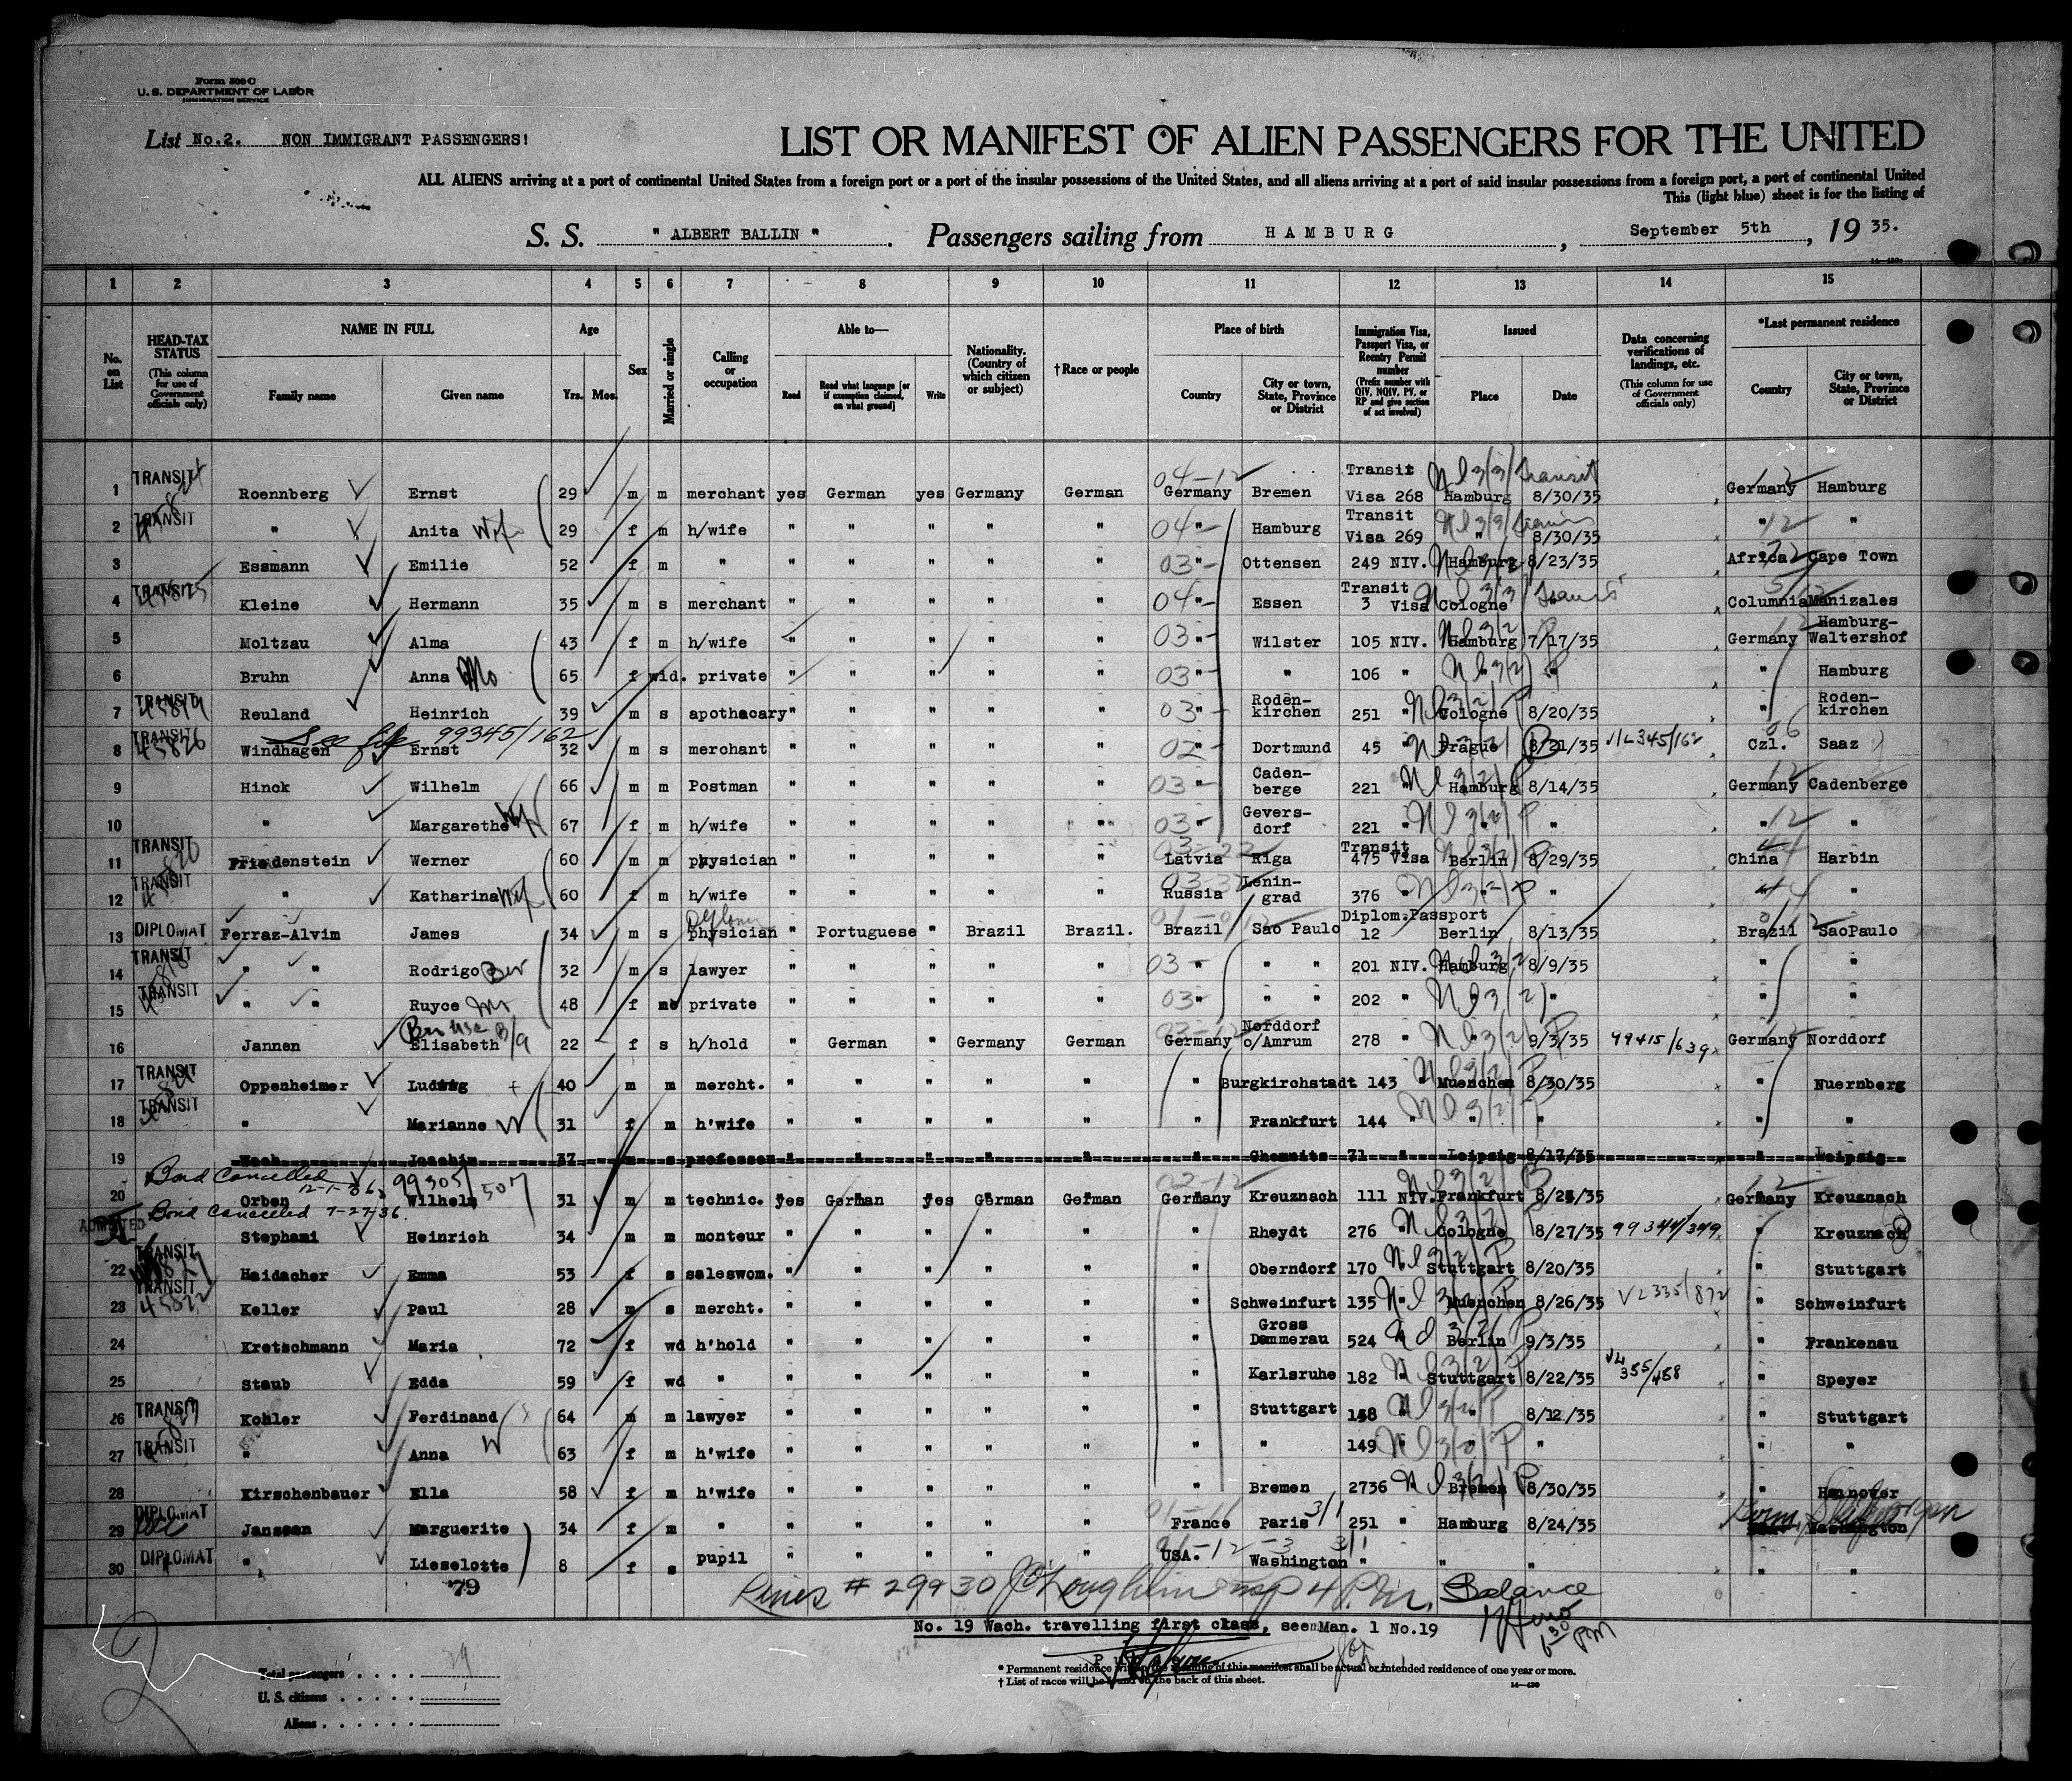 Form 500 C
U. S. DEPARTMENT OF LABOR
IMMIGRATION SERVICE
List No.2. NON IMMIGRANT PASSENGERS!
LIST OR MANIFEST OF ALIEN PASSENGERS FOR THE UNITED
ALL ALIENS arriving at a port of continental United States from a foreign port or a port of the insular possessions of the United States, and all aliens arriving at a port of said insular possessions from a foreign port, a port of continental United
This (light blue) sheet is for the listing of
S. S. " ALBERT BALLIN " . Passengers sailing from HAMBURG , September 5th , 19 35.
1 2 3 4 5 6 7 8 9 10 11 12 13 14 15
No. on List
HEAD-TAX STATUS (This column for use of Government officials only)
NAME IN FULL Family name Given name
Age Yrs. Mos.
Sex
Married or single
Calling or occupation
Able to— Read Read what language [or if exemption claimed, on what ground] Write
Nationality. (Country of which citizen or subject)
†Race or people
Place of birth Country City or town, State, Province or District
Immigration Visa, Passport Visa, or Reentry Permit number (Prefix number with QIV, NQIV, PV, or RP and give section of act involved)
Issued Place Date
Data concerning verifications of landings, etc. (This column for use of Government officials only)
*Last permanent residence Country City or town, State, Province or District
1 TRANSIT Roennberg Ernst 29 m m merchant yes German yes Germany German 04-12 Germany Bremen Transit Visa 268 Hamburg 8/30/35 Germany Hamburg
2 TRANSIT " Anita Wife 29 f m h/wife " " " " " 04 " Hamburg Transit Visa 269 " 8/30/35 " 12 "
3 Essmann Emilie 52 f m " " " " " " 03 " Ottensen 249 NIV. Hamburg 8/23/35 Africa Cape Town
4 TRANSIT Kleine Hermann 35 m s merchant " " " " " 04 " Essen Transit 3 Visa Cologne Columnia Manizales
5 Moltzau Alma 43 f m h/wife " " " " " 03 " Wilster 105 NIV. Hamburg 7/17/35 Germany Hamburg-Waltershof
6 Bruhn Anna Mo 65 f wid. private " " " " " 03 " " 106 " " " " Hamburg
7 TRANSIT Reuland Heinrich 39 m s apothecary " " " " " 03 " Roden-kirchen 251 " Cologne 8/20/35 " Roden-kirchen
See file 99345/162
8 TRANSIT 45826 Windhagen Ernst 32 m s merchant " " " " " 02 " Dortmund 45 " Prague 8/21/35 VL345/162 Czl. 06 Saaz
9 Hinck Wilhelm 66 m m Postman " " " " " 03 " Caden-berge 221 " Hamburg 8/14/35 Germany Cadenberge
10 " Margarethe Wf 67 f m h/wife " " " " " 03 " Gevers-dorf 221 " " " " 12 "
11 TRANSIT Friedenstein Werner 60 m m physician " " " " " Latvia Riga Transit 475 Visa Berlin 8/29/35 China Harbin
12 TRANSIT " Katharina Wif 60 f m h/wife " " " " " Russia Lenin-grad 376 " " " " "
13 DIPLOMAT Ferraz-Alvim James 34 m s physician " Portuguese " Brazil Brazil. Brazil Sao Paulo Diplom.Passport 12 Berlin 8/13/35 Brazil SaoPaulo
14 TRANSIT " " Rodrigo 32 m s lawyer " " " " " 03 " " " 201 NIV. Hamburg 8/9/35 " "
15 TRANSIT " " Ruyce 48 f private " " " " " 03 " " " 202 " " " " "
16 Jannen Elisabeth 22 f s h/hold " German " Germany German Germany Norddorf o/Amrum 278 " " 9/3/35 99415/639 Germany Norddorf
17 TRANSIT Oppenheimer Ludwig 40 m m mercht. " " " " " " Burgkirchstadt 143 " Muenchen 8/30/35 " Nuernberg
18 TRANSIT " Marianne W 31 f m h'wife " " " " " " Frankfurt 144 " " " " "
19 Wach Joachim 37 m s professor " " " " " " Chemnitz 71 " Leipzig 8/17/35 " Leipzig
Bond Cancelled 12-1-36 99305/507
20 Orben Wilhelm 31 m m technic. yes German yes German German Germany Kreuznach 111 NIV. Frankfurt Germany Kreuznach
Bond Cancelled 7-27-36
ADMITTED Stephani Heinrich 34 m m monteur " " " " " " Rheydt 276 " Cologne 8/27/35 99344/349 " Kreuznach
22 TRANSIT Haidacher Emma 53 f s saleswom. " " " " " " Oberndorf 170 " Stuttgart 8/20/35 " Stuttgart
23 TRANSIT 45822 Keller Paul 28 m s mercht. " " " " " " Schweinfurt 135 " Muenchen 8/26/35 VL335/872 " Schweinfurt
24 Kretschmann Maria 72 f wd h'hold " " " " " " Gross Dammerau 524 " Berlin 9/3/35 " Frankenau
25 Staub Edda 59 f wd " " " " " " " Karlsruhe 182 " Stuttgart 8/22/35 VL 355/458 " Speyer
26 TRANSIT Kohler Ferdinand 64 m m lawyer " " " " " " Stuttgart 148 " " 8/12/35 " Stuttgart
27 TRANSIT " Anna W 63 f m h'wife " " " " " " " 149 " " " " "
28 Kirschenbauer Ella 58 f m h'wife " " " " " " Bremen 2736 " Bremen 8/30/35 " Hannover
29 DIPLOMAT Janssen Marguerite 34 f m " " " " " " France Paris 3/1 251 " Hamburg 8/24/35 Washington
30 DIPLOMAT " Lieselotte 8 f s pupil " " " " " USA. Washington 3/1 " " " " "
79
# 29 & 30 4 P.M. Balance
6 30 PM
No. 19 Wach. travelling first class, see Man. 1 No.19
* Permanent residence within the meaning of this manifest shall be actual or intended residence of one year or more.
† List of races will be found on the back of this sheet.
14—430
Total passengers . . . . 29
U. S. citizens . . . . .
Aliens . . . . . .